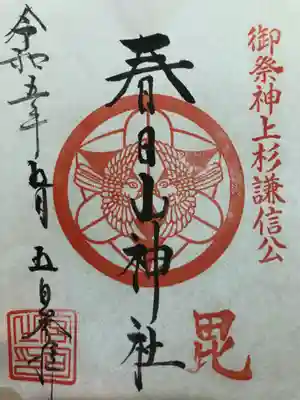 御祭神上杉謙信公
毘
春日山神社
令和五年五月五日参拝